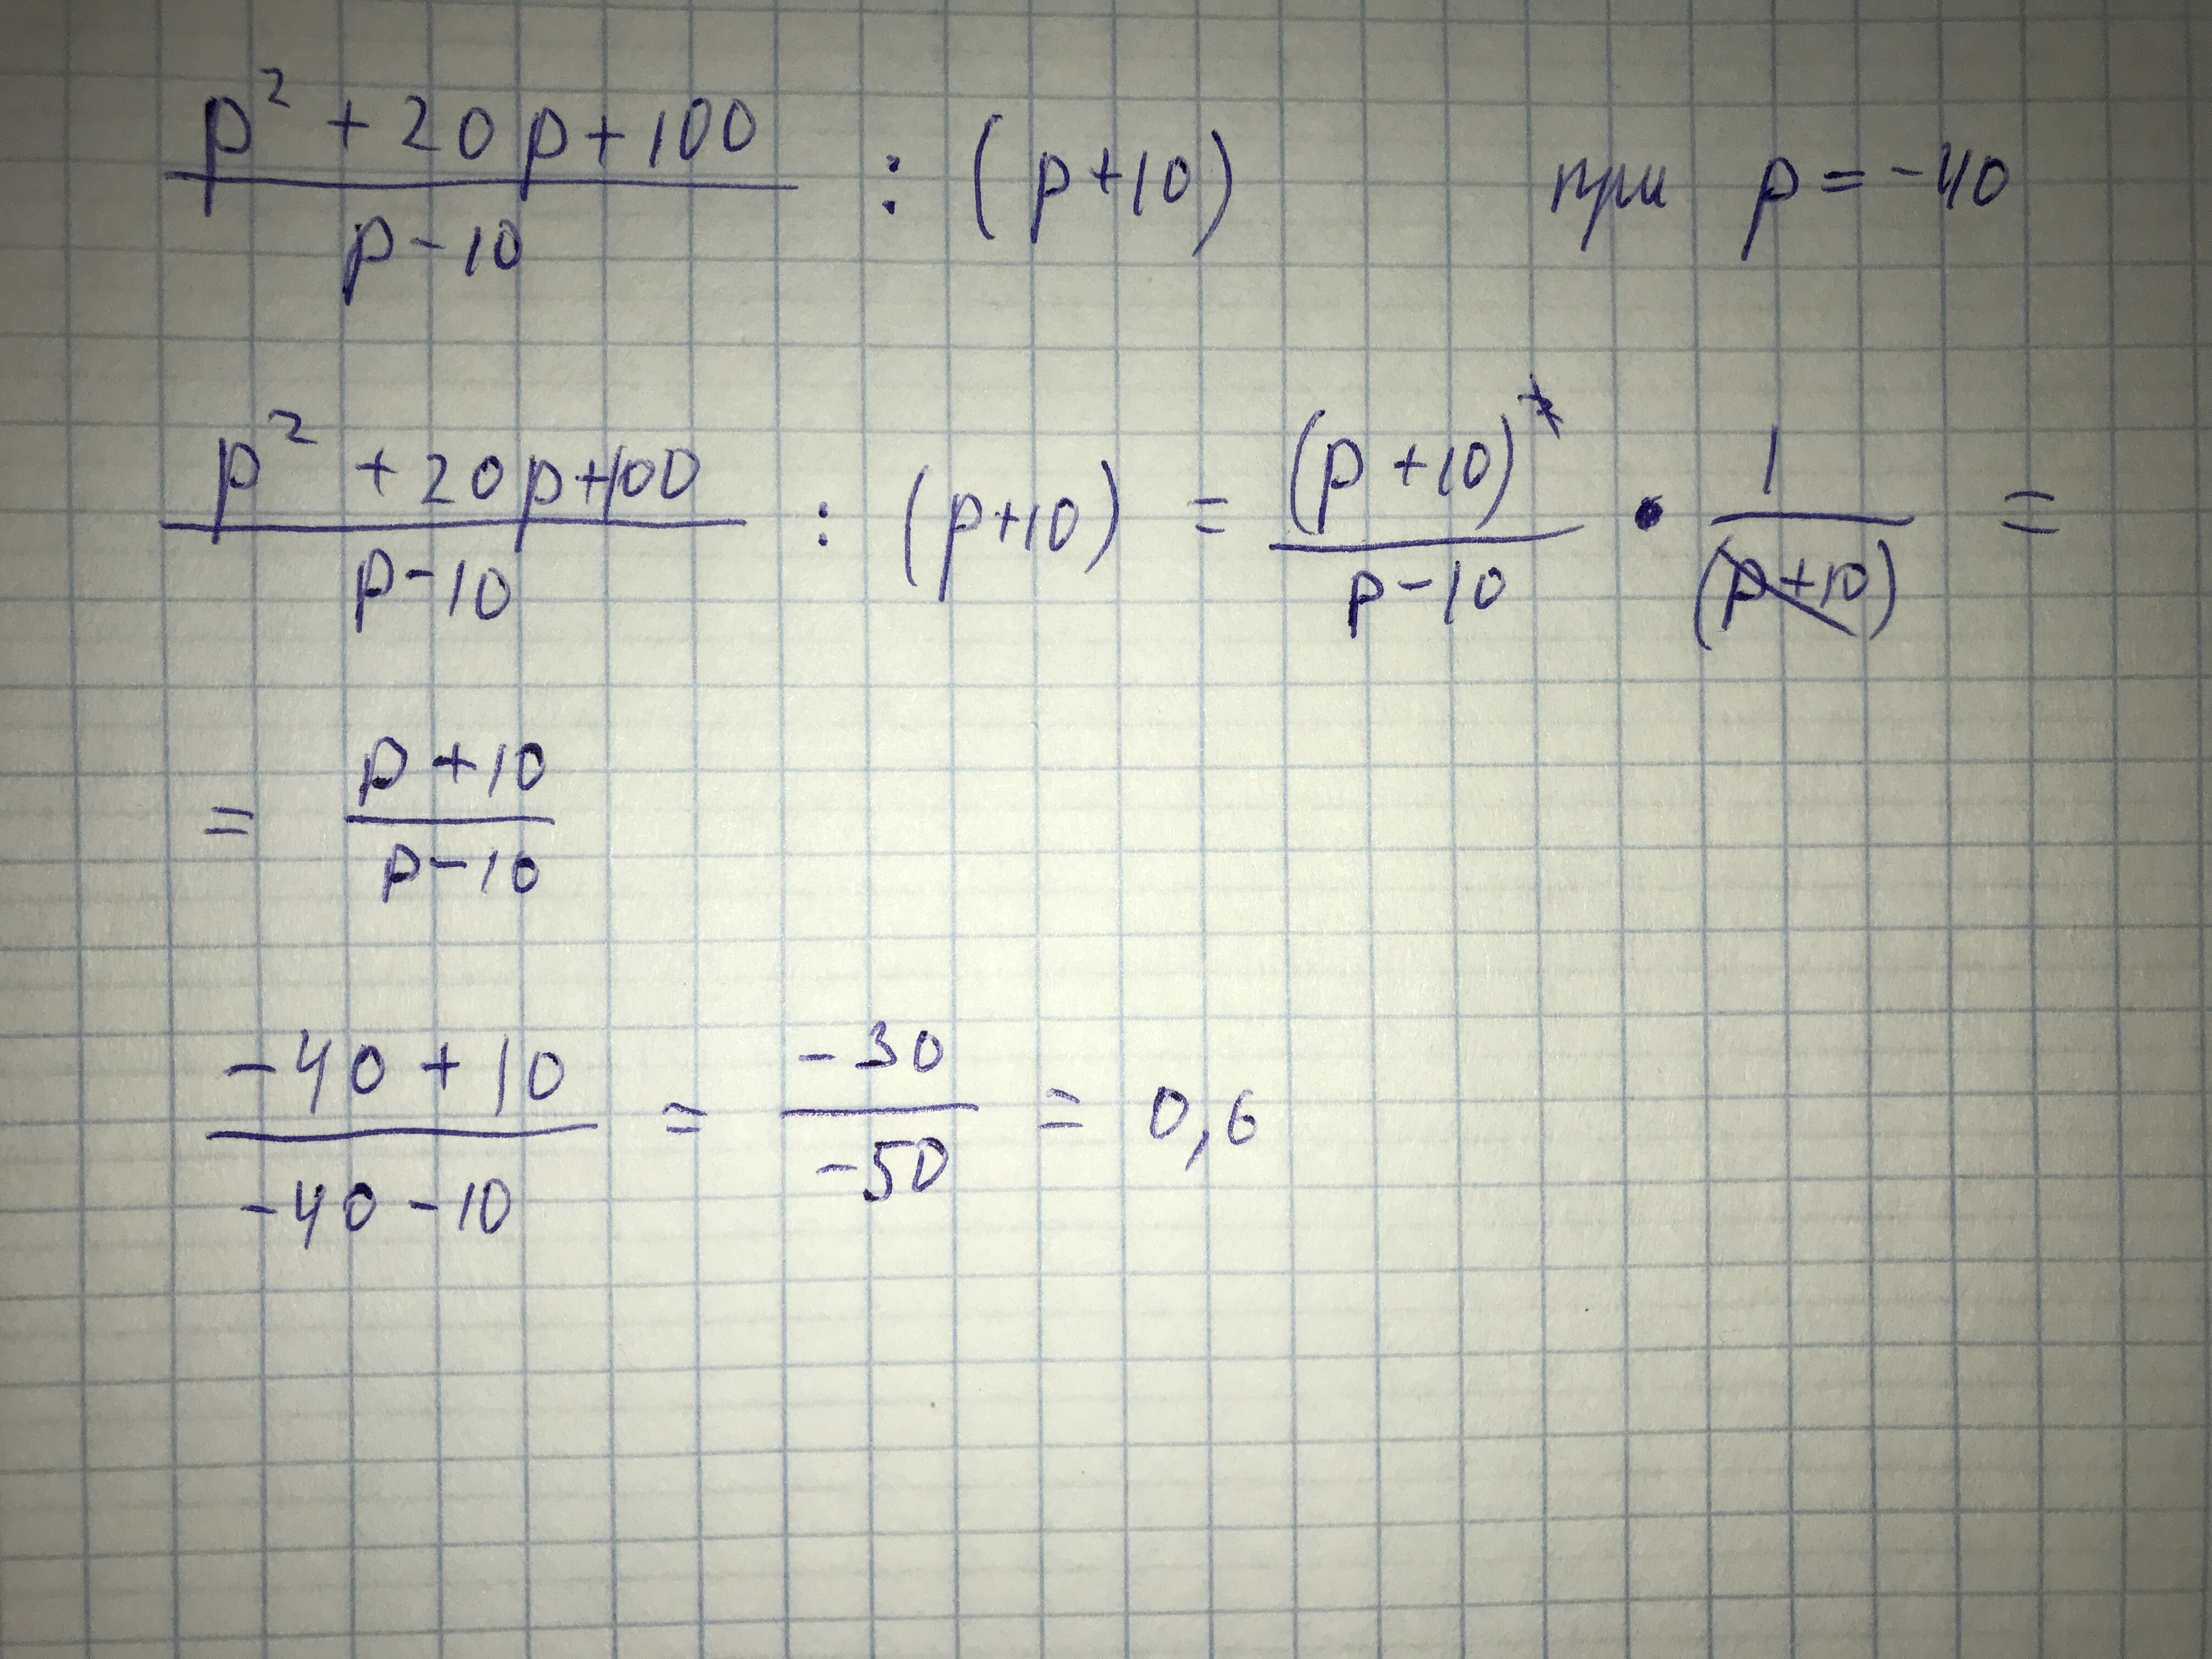 (p² + 20p + 100)/(p - 10) : (p + 10) при p = -40
(p² + 20p + 100)/(p - 10) : (p + 10) = (p + 10)²/(p - 10) • 1/(p + 10) =
= (p + 10)/(p - 10)
(-40 + 10)/(-40 - 10) = -30/-50 = 0,6